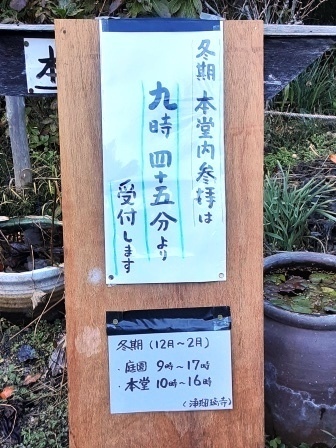 冬期 本堂内参拝は
九時 四十五分より
受付します
冬期(12月～2月)
・庭園 9時～17時
・本堂 10時～16時
本